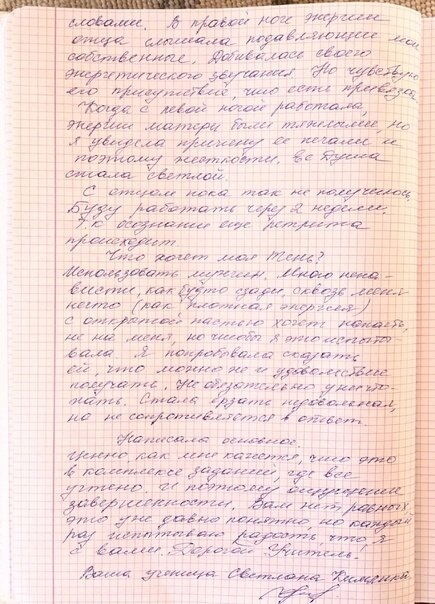 словами. В правой ноге энергии
отца слышала подавляющие мои
собственные. Добивалась своего
энергетического звучания. Но чувствую
его присутствие, что есть привязка.
Когда с левой ногой работала,
энергии матери были тяжелыми, но
я увидела причину ее печали и
поэтому жесткости, ее Душа
стала светлой.
С отцом пока так не получилось.
Буду работать через 2 недели.
Т.к осознания еще ретрита
происходит.
Что хочет моя Тень?
Использовать мужчин. Много нена-
висти, как будто сзади, сквозь меня
нечто (как плотная энергия)
с открытой пастью хочет напасть,
не на меня, но чтобы я это испыты-
вала. Я попробовала сказать
ей, что можно же и удовольствие
получать. Не обязательно уничто-
жать. Стала ерзать недовольная,
но не сопротивляется в ответ.
Написала основное.
Ценно, как мне кажется, что это
в комплексе заданий, где все
учтено. И поэтому ощущение
завершенности. Вам нет равных,
это уже давно понятно, но каждый
раз испытываю радость, что я
с Вами. Дорогой Учитель!
Ваша ученица Светлана